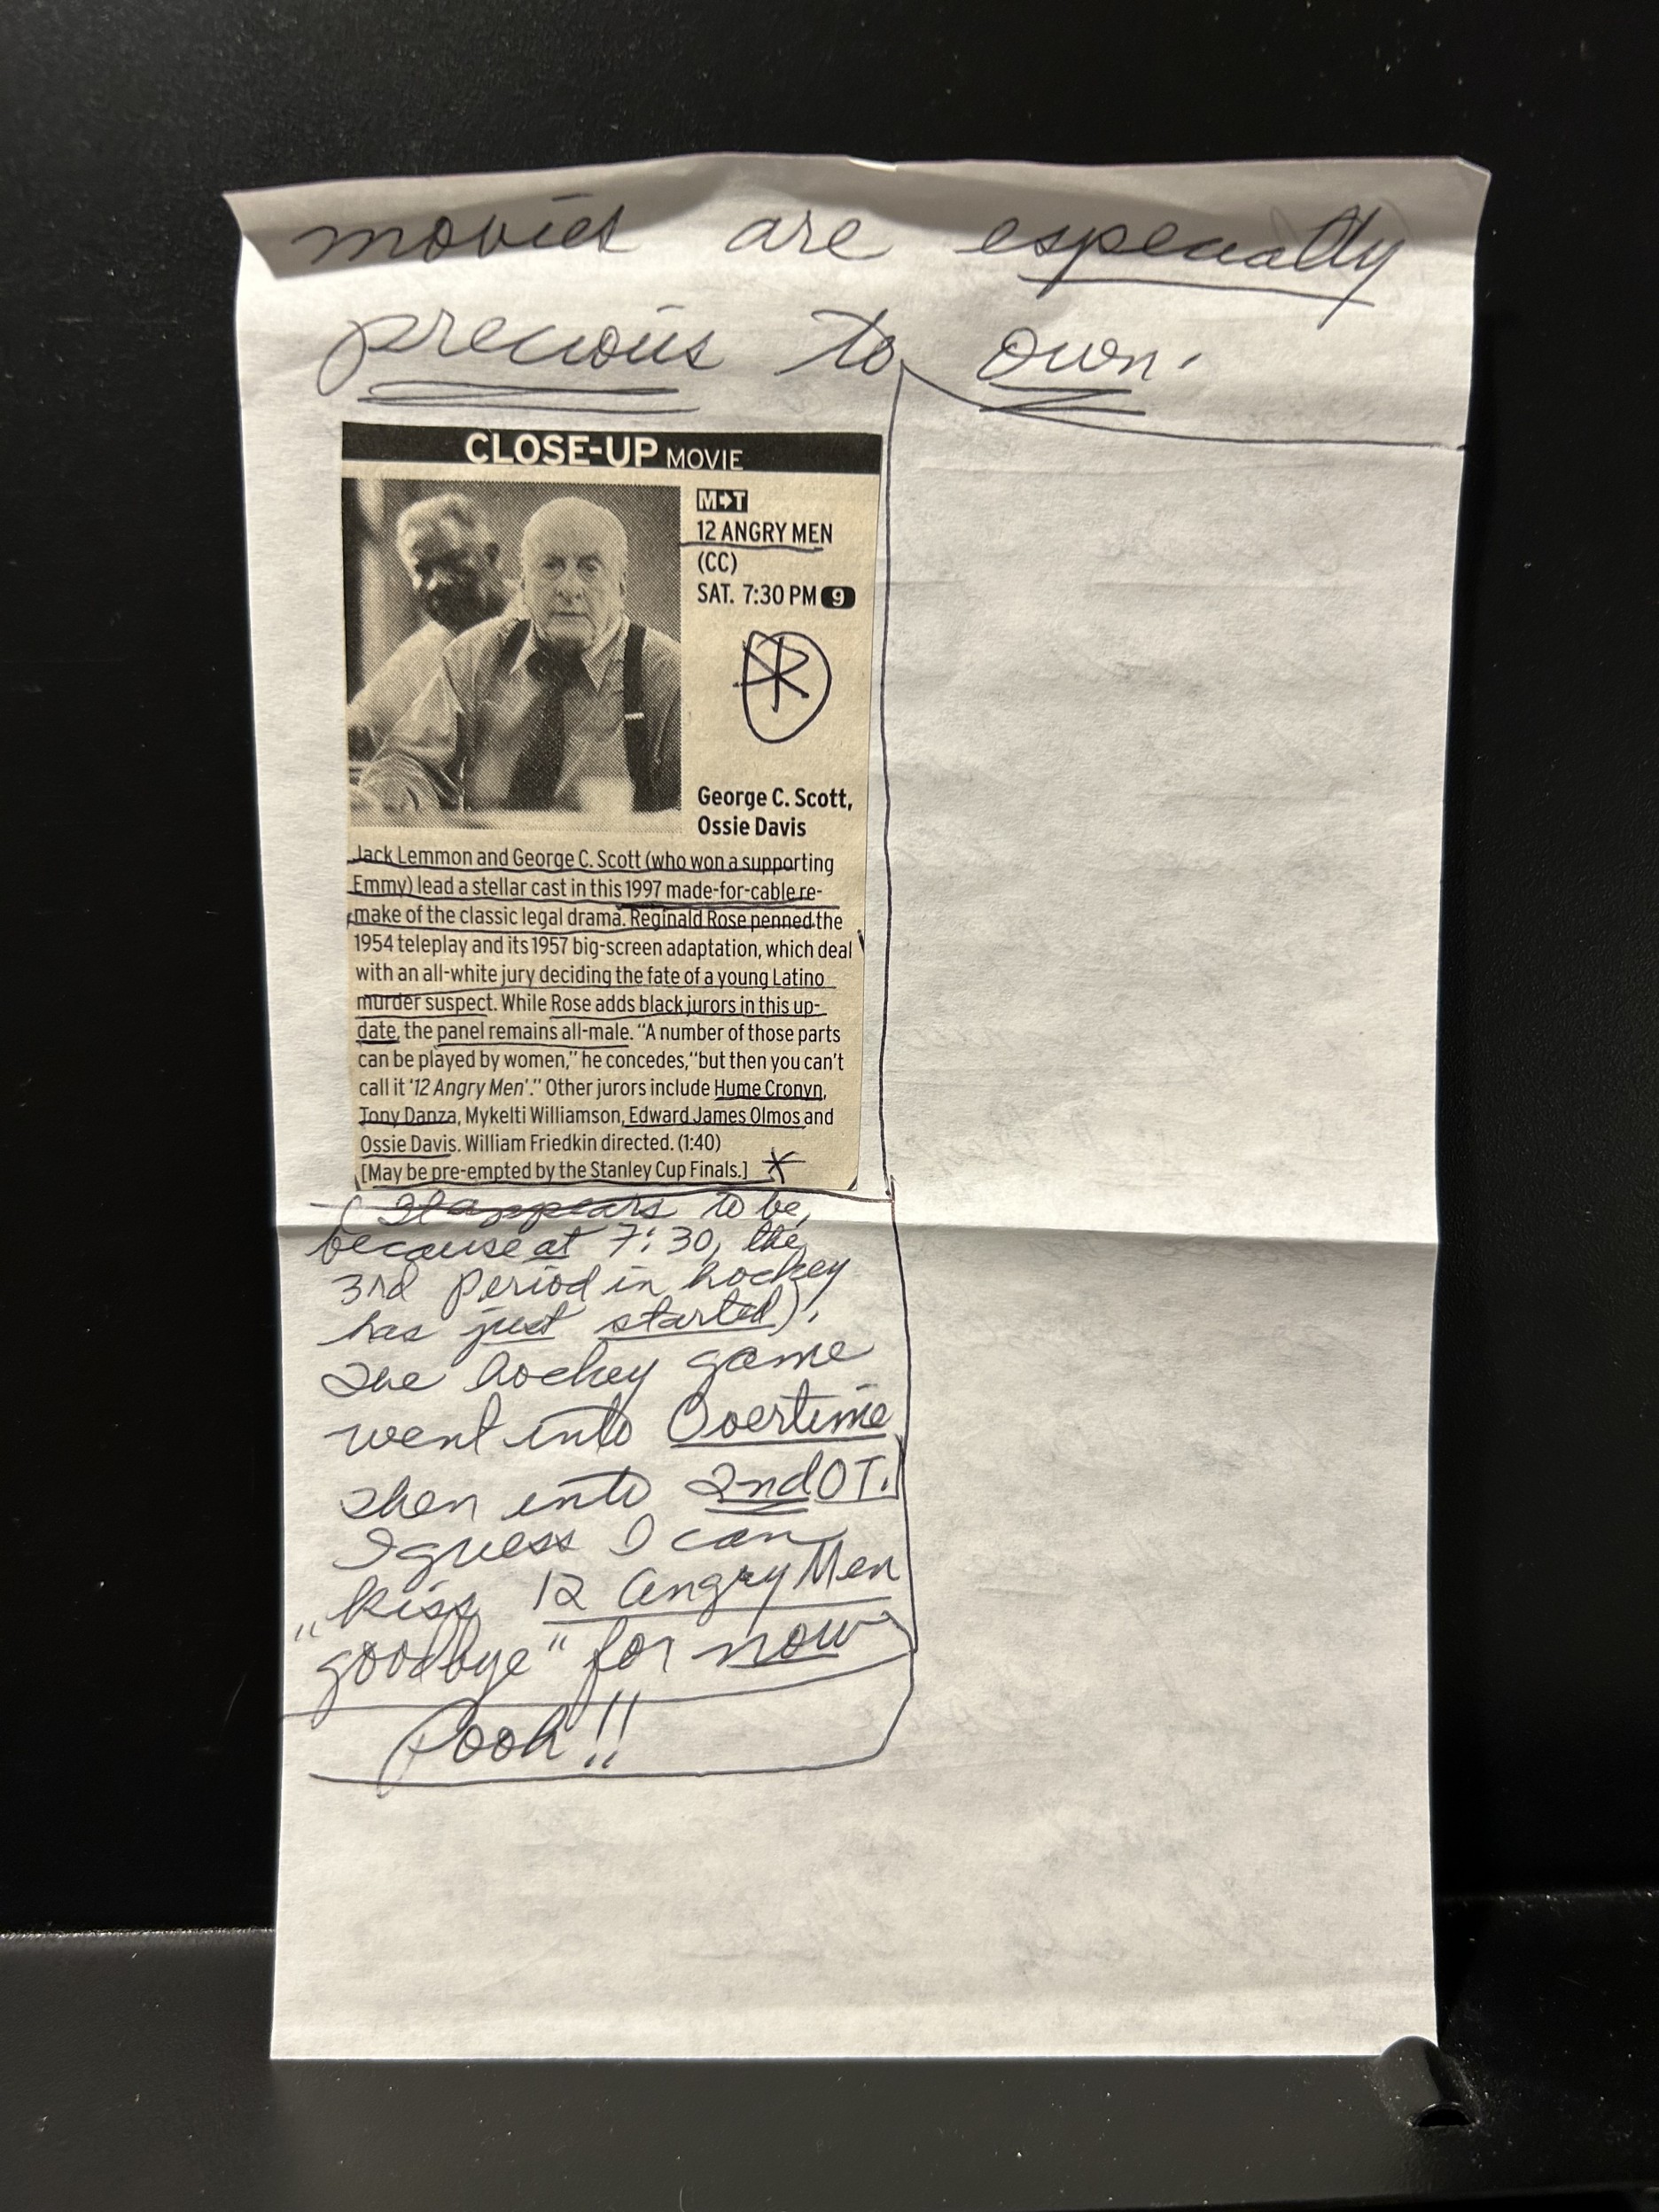 movies are especially
precious to own.
CLOSE-UP MOVIE
M➔T
12 ANGRY MEN
(CC)
SAT. 7:30 PM 9
George C. Scott,
Ossie Davis
Jack Lemmon and George C. Scott (who won a supporting
Emmy) lead a stellar cast in this 1997 made-for-cable re-
make of the classic legal drama. Reginald Rose penned the
1954 teleplay and its 1957 big-screen adaptation, which deal
with an all-white jury deciding the fate of a young Latino
murder suspect. While Rose adds black jurors in this up-
date, the panel remains all-male. "A number of those parts
can be played by women," he concedes, "but then you can't
call it '12 Angry Men'." Other jurors include Hume Cronyn,
Tony Danza, Mykelti Williamson, Edward James Olmos and
Ossie Davis. William Friedkin directed. (1:40)
[May be pre-empted by the Stanley Cup Finals.] *
(It appears to be,
because at 7:30, the
3rd period in hockey
has just started).
The hockey game
went into Overtime
then into 2nd OT.
I guess I can
"kiss 12 Angry Men
goodbye" for now
Pooh!!